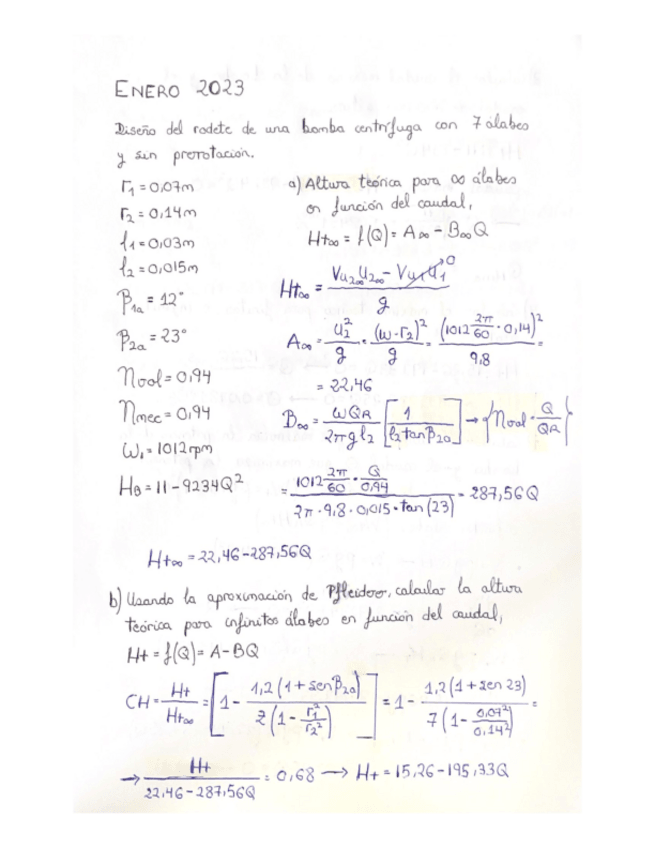 ENERO 2023
Diseño del rodete de una bomba centrífuga con 7 álabes
y sin prerrotación.
r₁ = 0,07m
r₂ = 0,14m
l₁ = 0,03m
l₂ = 0,015m
β₁a = 12°
β₂a = 23°
ηvol = 0,94
ηmec = 0,94
ω₁ = 1012rpm
H_B = 11 - 9234Q²
a) Altura teórica para ∞ álabes
en función del caudal,
Ht∞ = f(Q) = A∞ - B∞Q
Ht∞ = (Vu₂∞U₂∞ - Vu₁U₁→0) / g
A∞ = U₂²/g = (ω·r₂)²/g = (1012 2π/60 · 0,14)² / 9,8 =
= 22,46
B∞ = ωQ_R / 2πgl₂ [1 / l₂tanβ₂a] → {ηvol = Q/Q_R}
= (1012 2π/60 · Q/0,94) / (2π · 9,8 · 0,015 · tan(23)) = 287,56Q
Ht∞ = 22,46 - 287,56Q
b) Usando la aproximación de Pfleiderer, calcular la altura
teórica para infinitos álabes en función del caudal,
Ht = f(Q) = A - BQ
CH = Ht/Ht∞ = [1 - 1,2(1 + senβ₂a) / z(1 - r₁²/r₂²)] = 1 - 1,2(1 + sen 23) / 7(1 - 0,07²/0,14²) =
→ Ht / (22,46 - 287,56Q) = 0,68 → Ht = 15,26 - 195,33Q